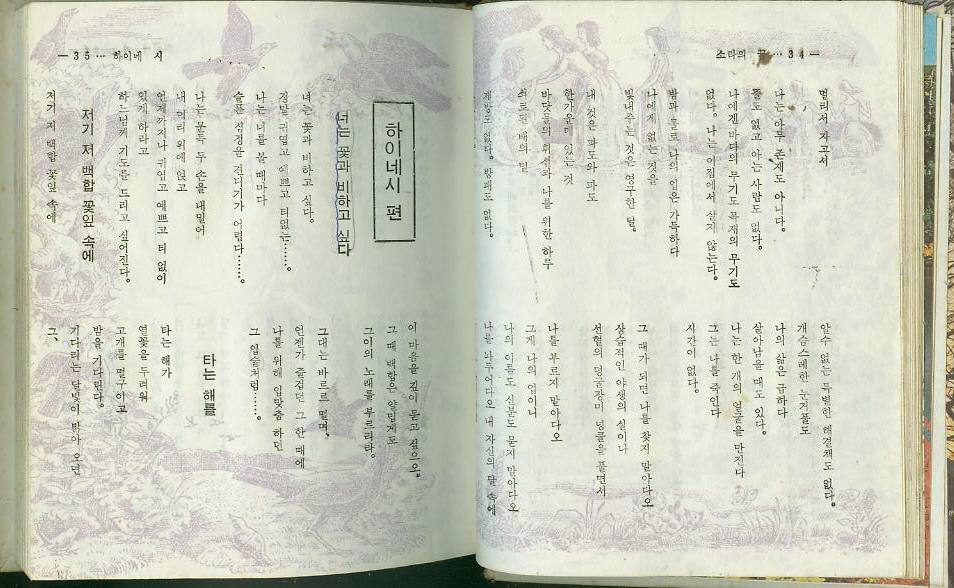 소라의 꿈 … 34 —
멀리서 자고서
나는 아무 존재도 아니다.
뜰도 없고 아는 사람도 없다.
나에겐 바다의 무기도 목재의 무기도
없다. 나는 이집에서 살지 않는다.
밤과 물로 나의 입은 가득하다
나에게 없는 것을
빛내주는 것은 영구한 달.
내 것은 파도와 파도
한가운데 있는 것
바닷물의 휘센과 나를 위한 하루
된 배의 밑
도 없다. 방패도 없다.
알수 없는 특별한 해결책도 없다.
개슴스레한 눈거풀도
나의 삶은 급하다
살아남을 때도 있다.
나는 한 개의 얼굴을 만진다
그는 나를 죽인다
시간이 없다.
그 때가 되면 나를 찾지 말아다오
상습적인 야생의 실이나
선혈의 덩굴장미 덩굴을 풀면서
나를 부르지 말아다오
그게 나의 업이니
나의 이름도 신분도 묻지 말아다오
나를 놔두어다오 내 자신의 달 속에
— 35 … 하이네 시
하이네시 편
너는 꽃과 비하고 싶다
너는 꽃과 비하고 싶다.
정말 귀엽고 예쁘고 티없는……。
나는 너를 볼 때마다
슬픈 심정을 견디기가 어렵다……。
나는 문득 두 손을 내밀어
내 머리 위에 얹고
언제까지나 귀엽고 예쁘고 티 없이
있게 하라고
하느님께 기도를 드리고 싶어진다.
저기 저 백합 꽃잎 속에
저기 저 백합 꽃잎 속에
이 마음을 깊이 묻고 싶으오.
그 때 백합은 얄밉게도
그이의 노래를 부르리라.
그대는 바르르 떨며、
언젠가 즐겁던 그 한 때에
나를 위해 입맞춤 하던
그 입술처럼……。
타는 해를
타는 해가
열꽃을 두려워
고개를 떨구이고
밤을 기다린다.
기다리는 달빛이 밝아 오면
그、